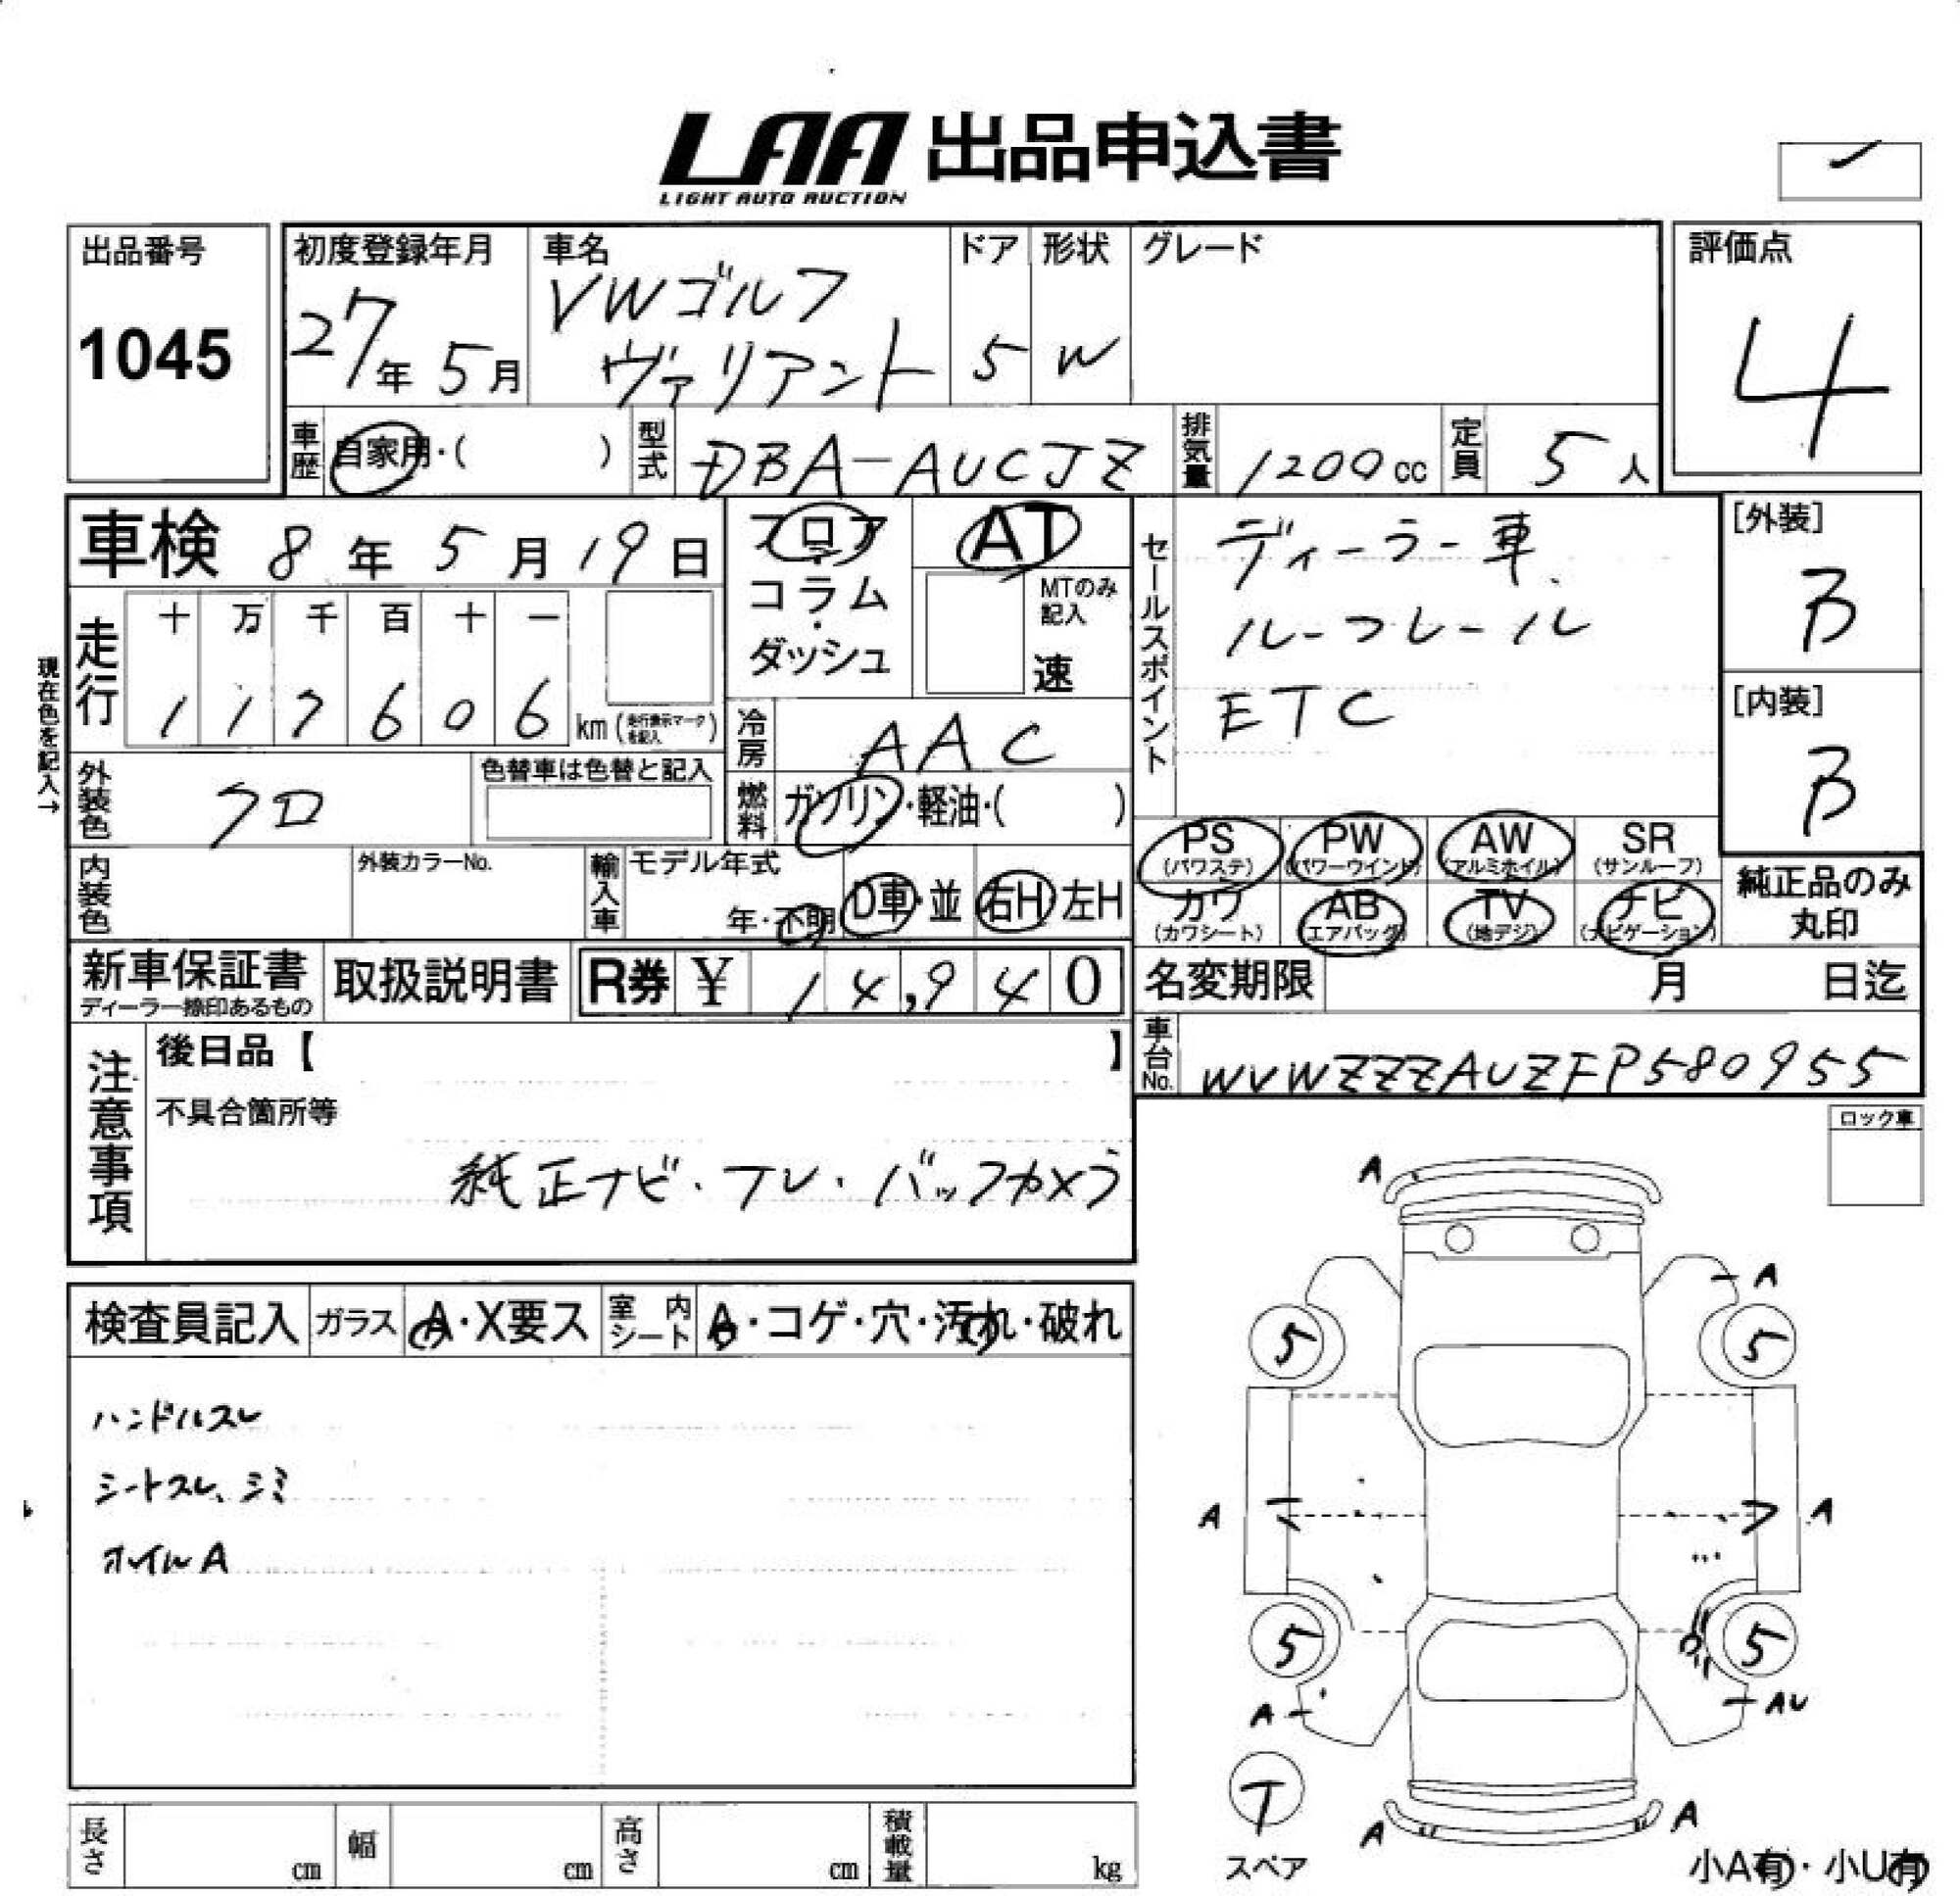 LAA 出品申込書
LIGHT AUTO AUCTION
出品番号
1045
初度登録年月
27年 5月
車名
VWゴルフ
ヴァリアント
ドア
5
形状
W
グレード
評価点
4
車歴
自家用・( )
型式
DBA-AUCJZ
排気量
1200cc
定員
5人
車検 8年 5月 19日
走行
十 万 千 百 十 一
1 1 7 6 0 6 km (走行表示マークを記入)
現在色を記入→
外装色
クロ
色替車は色替と記入
内装色
外装カラーNo.
フロア
コラム
・
ダッシュ
AT
MTのみ
記入
速
冷房
AAC
燃料
ガソリン・軽油・( )
輸入車
モデル年式
年・不明
D車・並
右H 左H
セールスポイント
ディーラー車
ルーフレール
ETC
[外装]
B
[内装]
B
PS (パワステ)
PW (パワーウインド)
AW (アルミホイル)
SR (サンルーフ)
カワ (カワシート)
AB (エアバッグ)
TV (地デジ)
ナビ (ナビゲーション)
純正品のみ
丸印
新車保証書
ディーラー捺印あるもの
取扱説明書
R券 ¥ 14,940
名変期限 月 日迄
車台No.
WVWZZZAUZFP580955
注意事項
後日品【 】
不具合箇所等
純正ナビ・TV・バックカメラ
ロック車
検査員記入
ガラス
A・X要ス
室内シート
A・コゲ・穴・汚れ・破れ
ハンドルスレ
シートスレ、シミ
オイルA
A
A
5
5
A
A
5
5
A
AU
T
スペア
A
A
小A有・小U有
長さ cm
幅 cm
高さ cm
積載量 kg